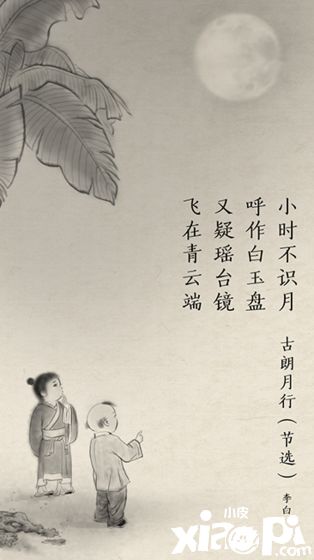 小时不识月
呼作白玉盘
又疑瑶台镜
飞在青云端
古朗月行(节选)
李白
小皮
xiaopi.com